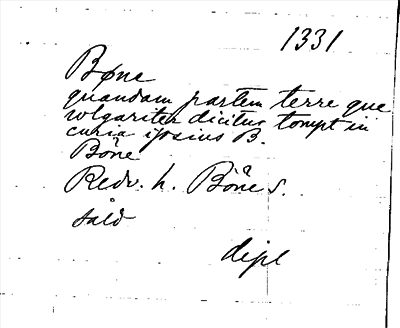 1331
Bøne
quandam partem terre que
wlgariter dicitur tompt in
curia ipsius B.
Böne
Redv. h. Böne s.
såld
dipl